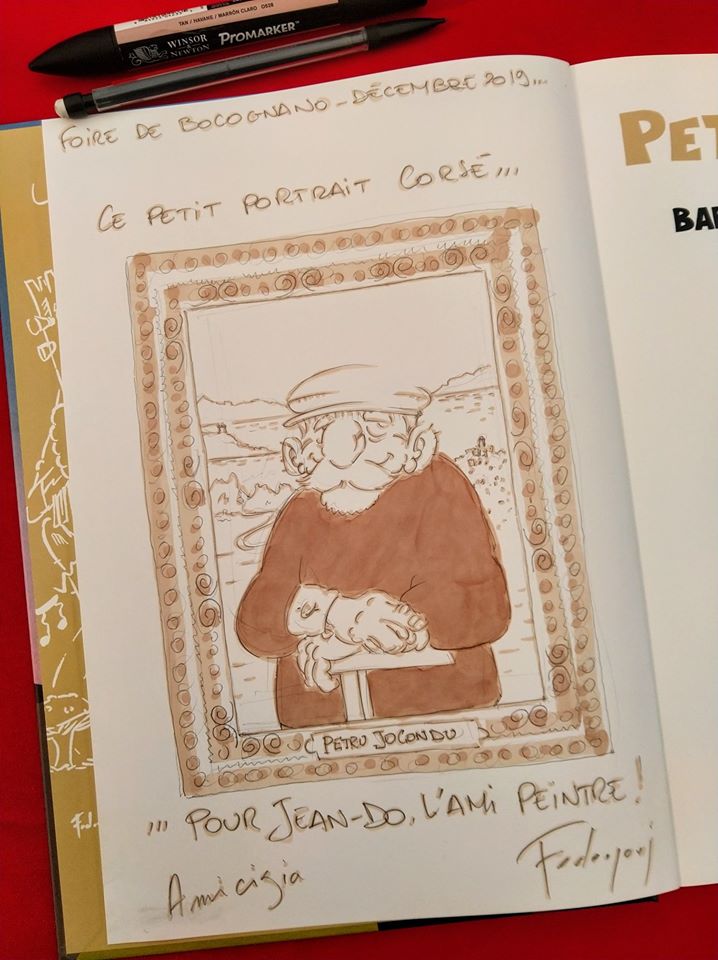 TAN / HAVANE / MARRÓN CLARO O528
WINSOR & NEWTON PROMARKER™
FOIRE DE BOCOGNANO - DÉCEMBRE 2019...
CE PETIT PORTRAIT CORSÉ...
PET
BAR
PETRU JOCONDU
... POUR JEAN-DO, L'AMI PEINTRE !
Amicizia